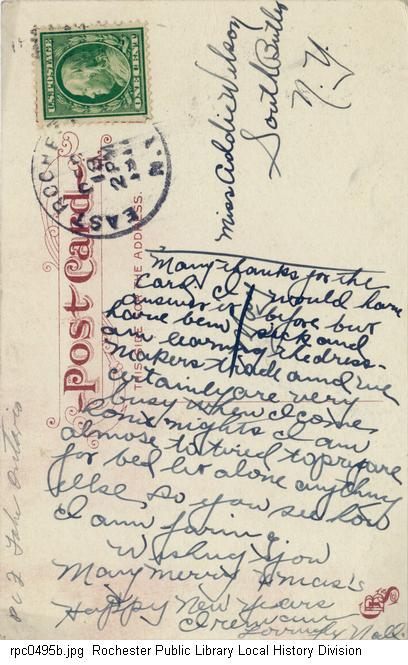 U.S. POSTAGE
ONE CENT
EAST ROCHE
2 PM
N.Y.
Miss Addie Wilson
South Butler
N. Y.
Post Card
THIS SIDE FOR THE ADDRESS.
Many thanks for the
card I would have
answer it before but
have been sick and
am learning the dress-
makers trade and we
certainly are very
busy when I come
home nights I am
almose to tired to prepare
for bed let alone anything
else, so you see how
I am faring.
Wishing you
Many merry Xmas's
Happy New Years
Lovingly Nell.
812 Lake Ontario
rpc0495b.jpg Rochester Public Library Local History Division